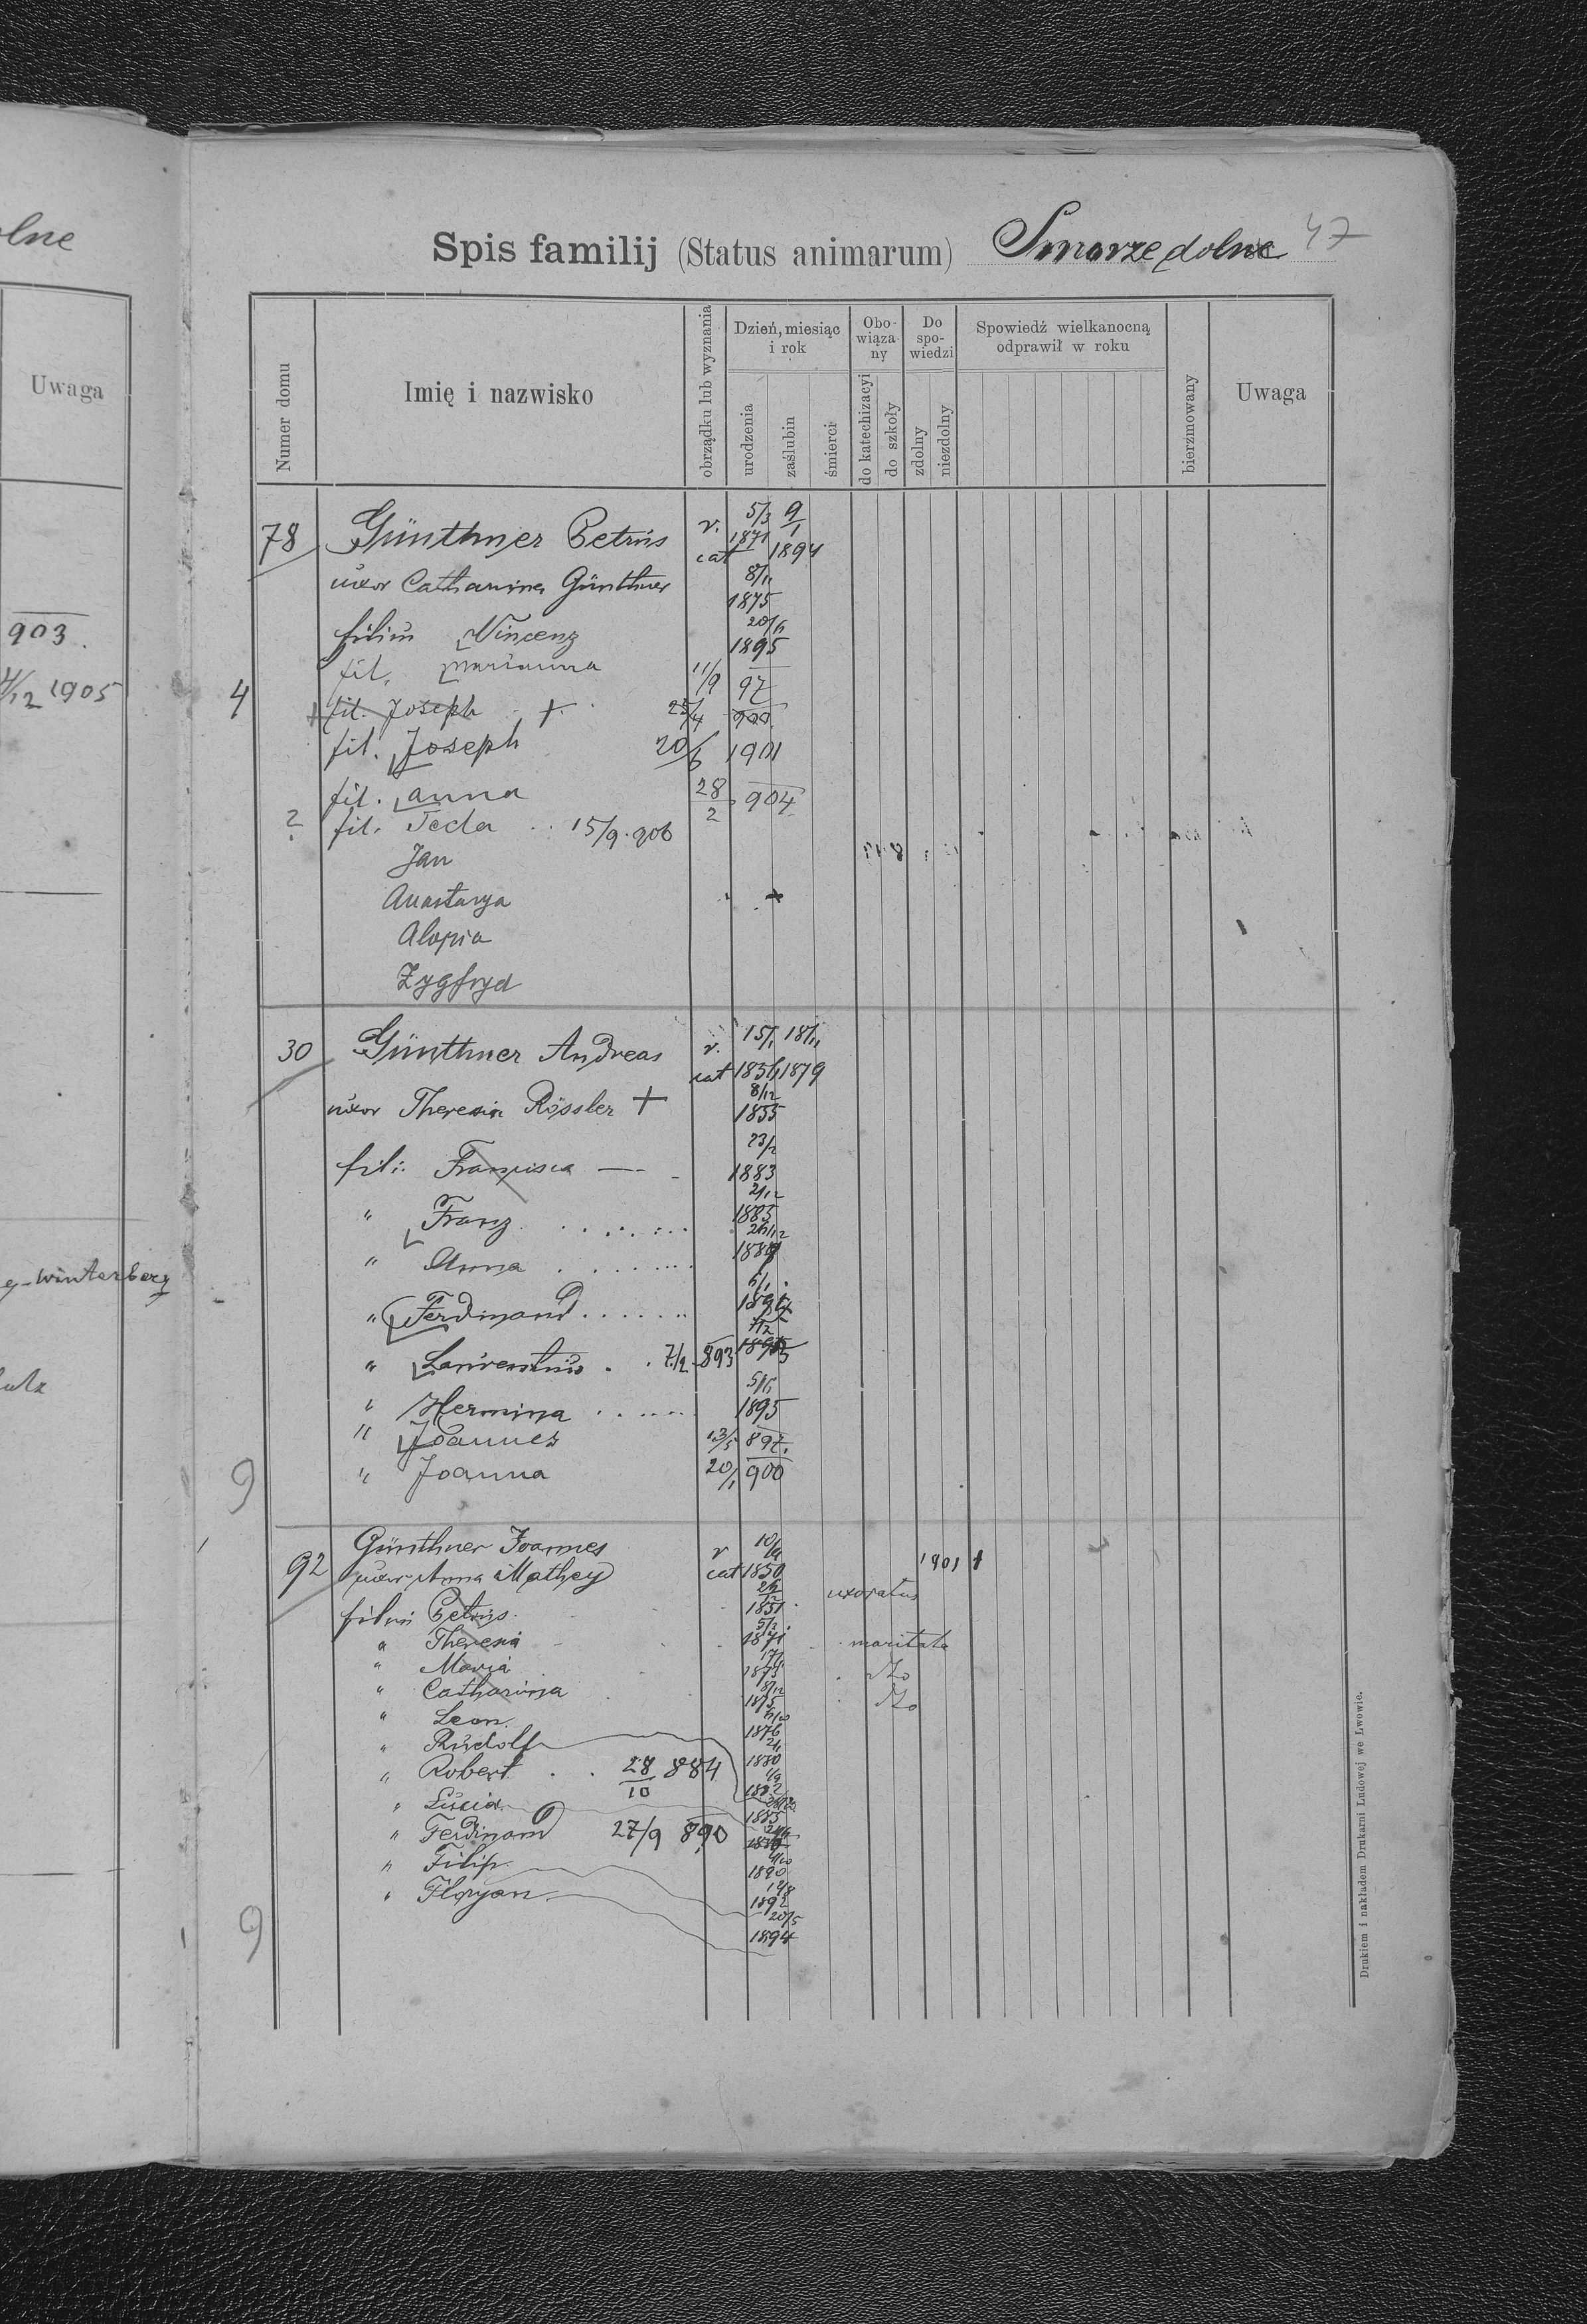 olne
Uwaga
903.
4/12 1905
y-Winterberg
Spis familij (Status animarum) Smarze dolne 47
Numer domu
Imię i nazwisko
obrządku lub wyznania
Dzień, miesiąc i rok
urodzenia
zaślubin
śmierci
Obowiązany
do katechizacyi
do szkoły
Do spowiedzi
zdolny
niezdolny
Spowiedź wielkanocną odprawił w roku
bierzmowany
Uwaga
78 Günthner Petrus r. cat 5/3 1871 9/1 1894
uxor Catharina Günthner 8/11 1875
filius Vincenz 20/6 1895
fil. Marianna 11/9 97
4
+ fil. Joseph + 25/4 900
fil. Joseph 20/6 1901
fil. Anna 28/2 904
? fil. Tecla 15/9.906
Jan
Anastazya
Alojzia
Zygfryd
30 Günthner Andreas r. cat 15/1 1854 18/11 1879
uxor Theresia Rössler + 8/12 1855
fili: Francisca 23/2 1883
" Franz 2/12 1885
" Anna 1889
" Ferdinand 6/1
" Laurentius 7/2 893
" Hermina 5/6 1895
" Joannes 13/5 897.
" Joanna 20/1 900
9
92 Günthner Joannes r cat 10/9 1850 1901 +
uxor Anna Mathey 1851
filii Petrus 5/2 1871 uxoratus
" Theresia 1873 maritata
" Maria 1875 do
" Catharina 1876 do
" Leon 1880
" Rudolf
" Robert 28/10 884
" Lucia
" Ferdinand 27/9 890
" Filip 1892
" Floryan 20/5 1894
9
Drukiem i nakładem Drukarni Ludowej we Lwowie.